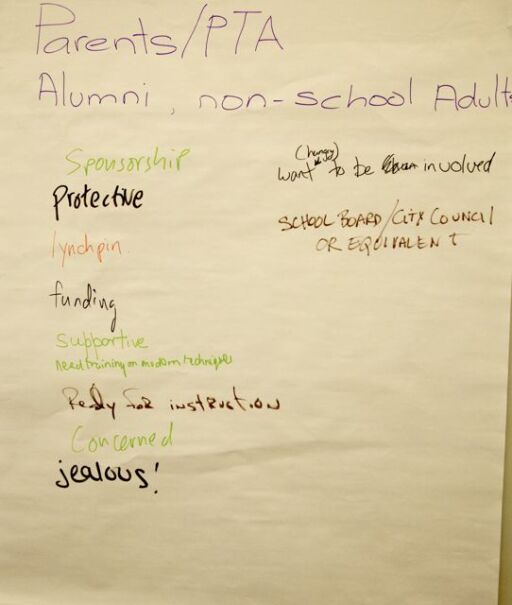 Parents/PTA
Alumni, non-school Adults
Sponsorship
Protective
lynchpin
funding
Supportive
Need training on modern techniques
Ready for instruction
Concerned
jealous!
(hungry)
want to be involved
SCHOOL BOARD/CITY COUNCIL
OR EQUIVALENT